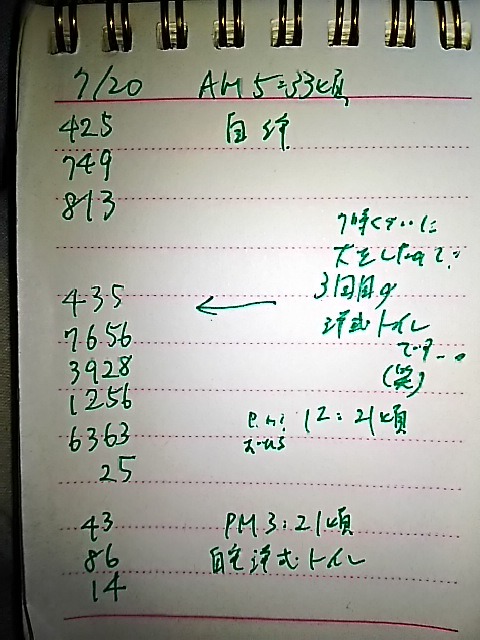 7/20 AM 5:33頃
425 自絆
749
813
7時くらいに
大をしたので:
435 ← 3回目の
7656 洋式トイレ
です。
3928 (笑)
1256 P.M: 12:21頃
6363 おひる
25
43 PM 3:21頃
86 自宅洋式トイレ
14